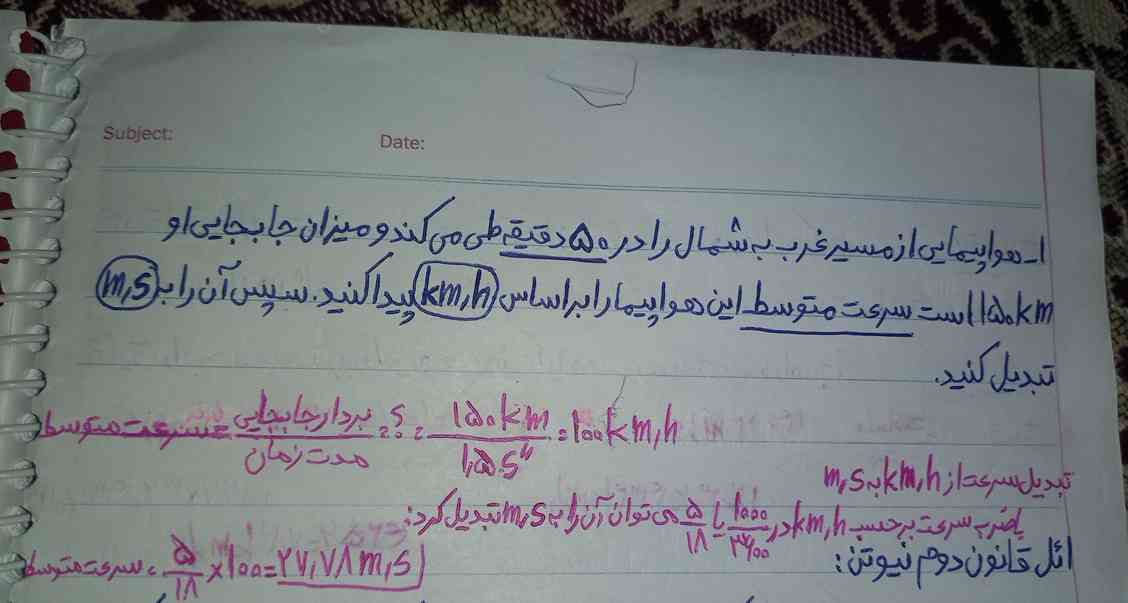 Subject:
Date:
۱- هواپیمایی از مسیر غرب به شمال را در ۵۰ دقیقه طی می کند و میزان جابجایی او
۱۵۰km است سرعت متوسط این هواپیما را براساس km,h پیدا کنید. سپس آن را به m,s
تبدیل کنید.
سرعت متوسط = بردار جابجایی / مدت زمان = ? = ۱۵۰km / ۱,۵s" = ۱۰۰km,h
تبدیل سرعت از km,h به m,s
با ضرب سرعت برحسب km,h در ۱۰۰۰/۳۶۰۰ یا ۵/۱۸ می توان آن را به m,s تبدیل کرد:
سرعت متوسط = ۵/۱۸ × ۱۰۰ = ۲۷,۷۸m,s
قانون دوم نیوتن: